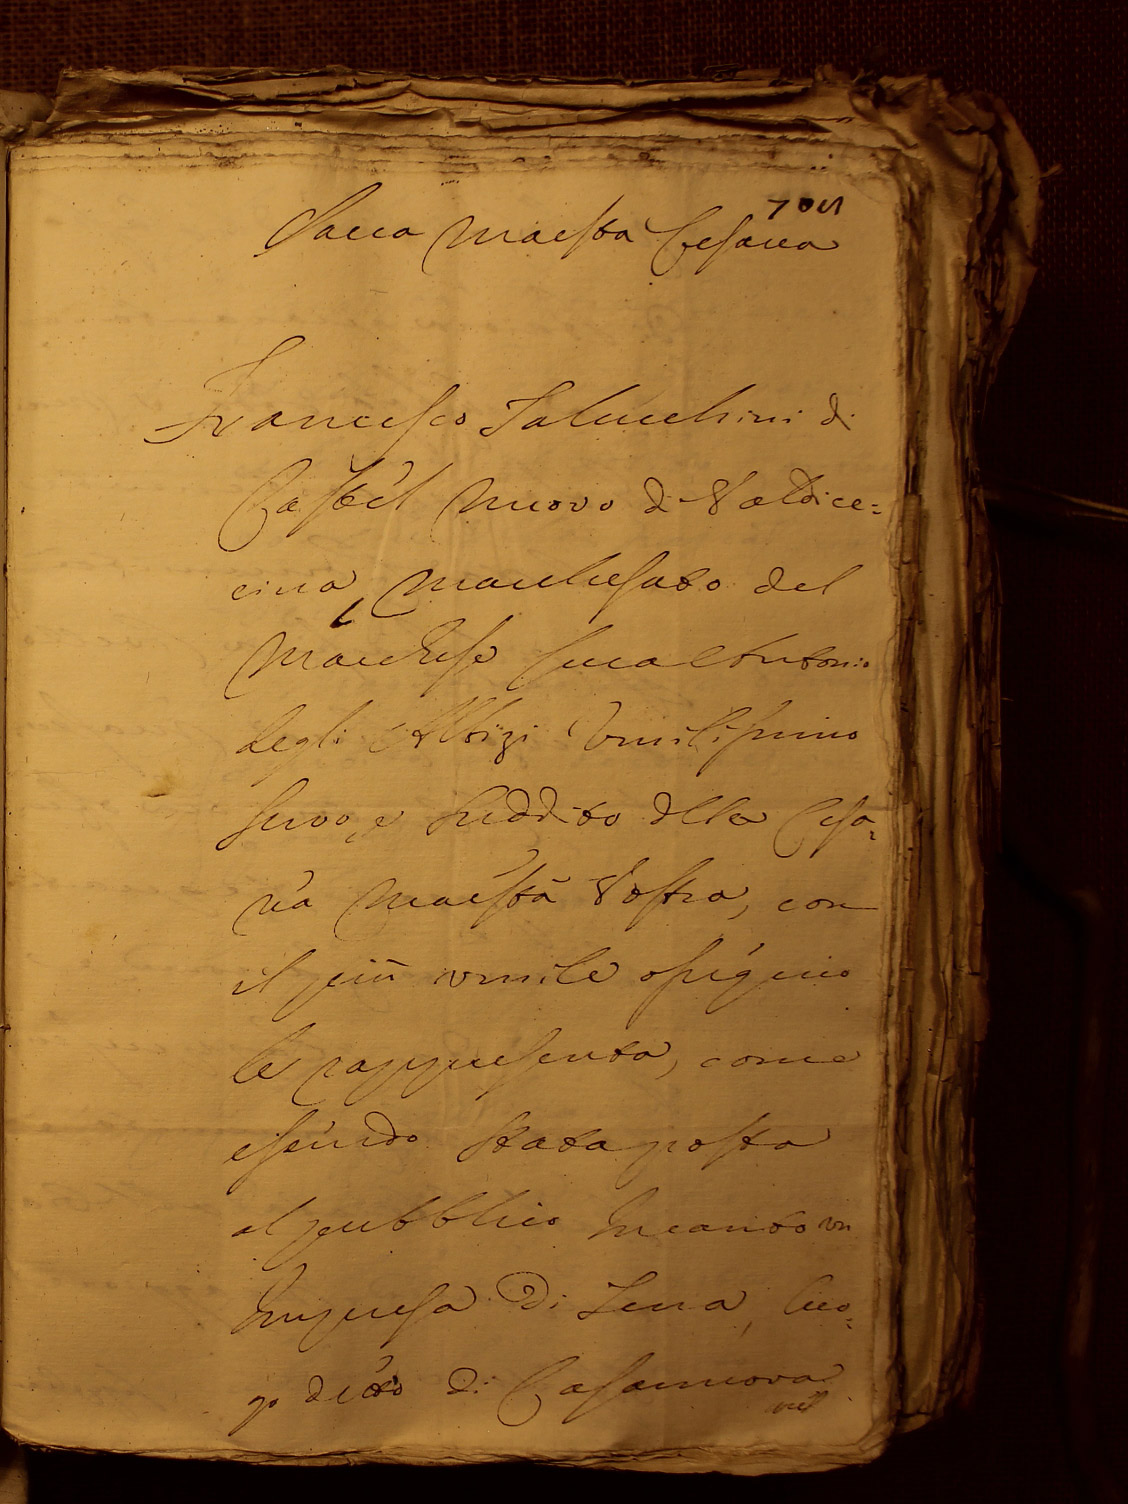 Sacra Maestà Cesarea
Francesco Salucchini di
Castel Nuovo di Valdice=
cina Marchesato del
Marchese Luca Antonio
degli Albizi Umilissimo
servo, e suddito della Cesa=
rea Maestà Vostra, con
il più umile ossequio
le rappresenta, come
essendo stata posta
al pubblico Incanto un
Impresa di Terra, luo=
go detto di Casanuova
nell